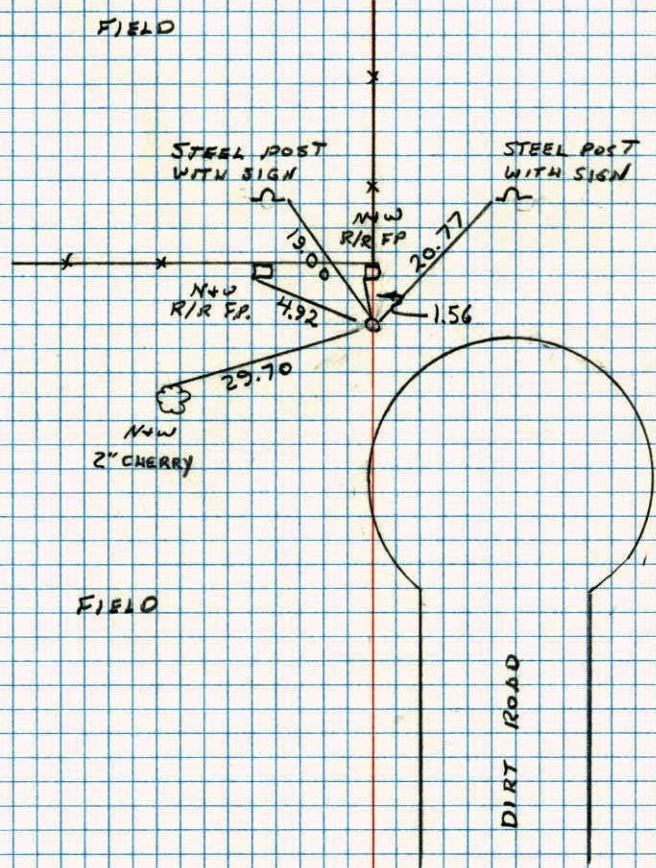 FIELD
STEEL POST
WITH SIGN
STEEL POST
WITH SIGN
N+W
R/R FP
19.00
20.77
N+W
R/R F.P.
4.92
1.56
29.70
N+W
2" CHERRY
FIELD
DIRT ROAD